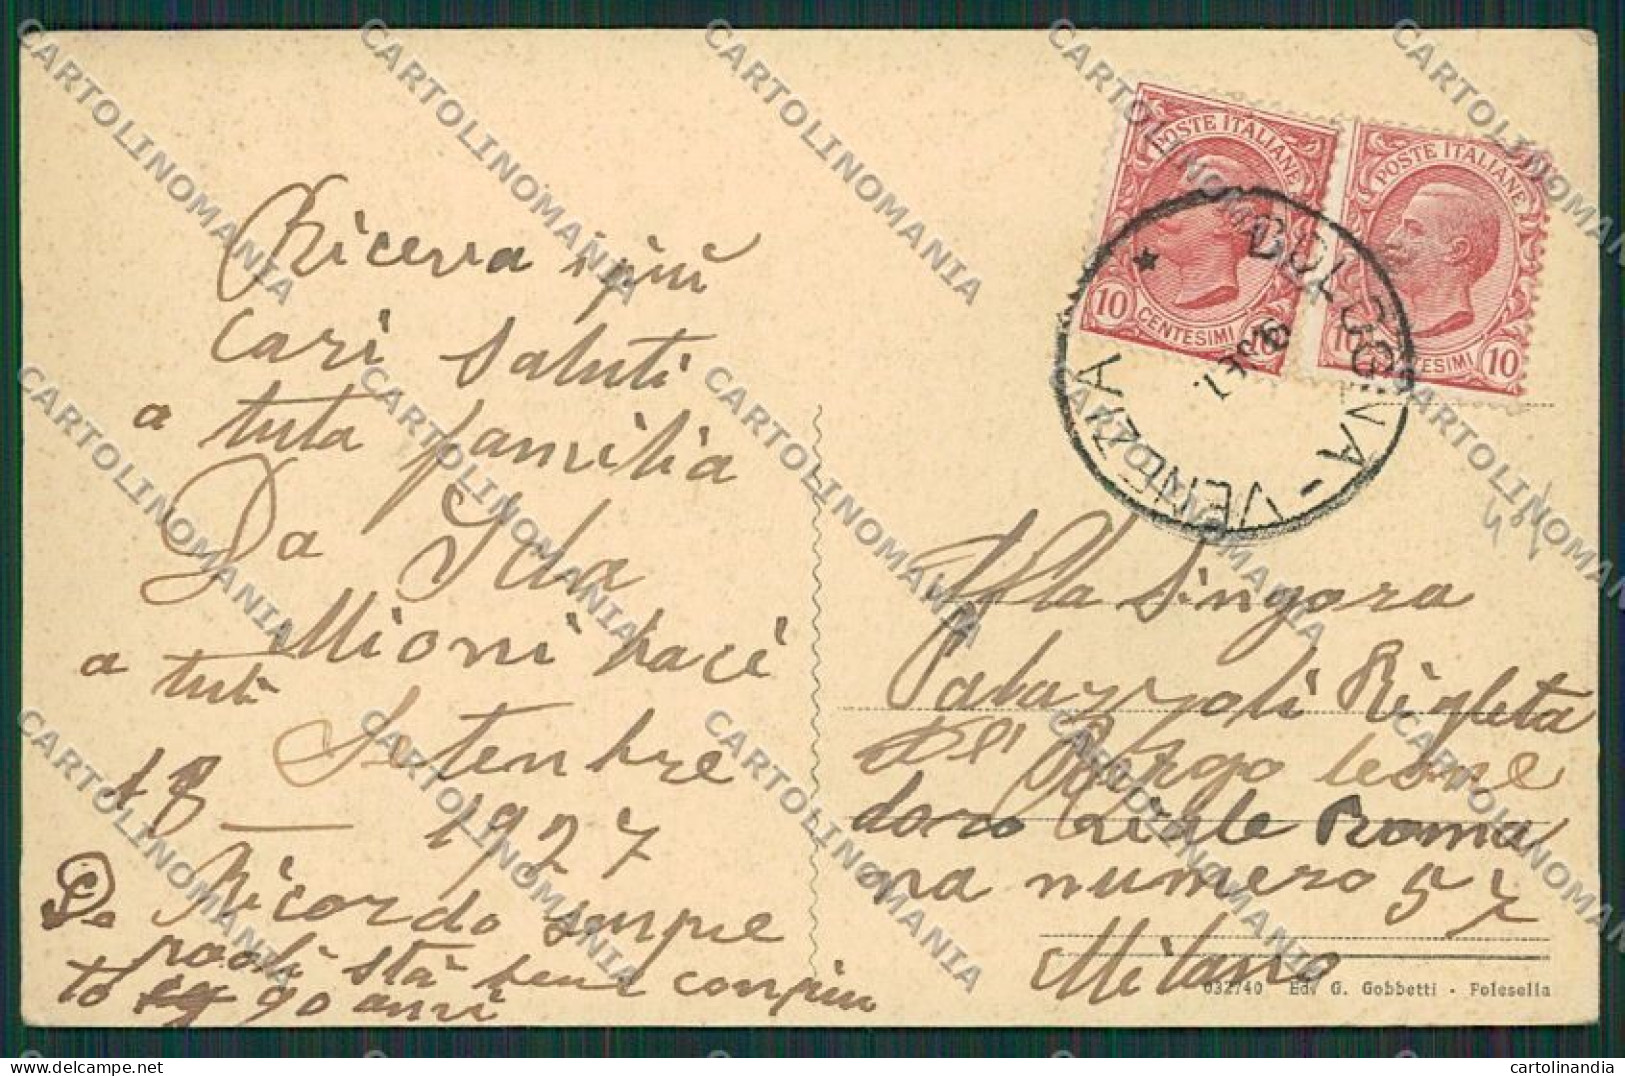 Riceva i più
cari saluti
a tuta familia
Da Ida
Mioni baci
a tuti
Setembre
18 — 1927
Ricordo sempre
stà bene conpiu
to 90 anni
POSTE ITALIANE
10 CENTESIMI 10
POSTE ITALIANE
10 CENTESIMI 10
BOLOGNA - VENEZIA
Alla Singora
Palazzoli Rigleta
Borgo leone
doro Reale Roma
na numero 57
Milano
032740 Ed. G. Gobbetti - Polesella
CARTOLINOMANIA
cartolinandia